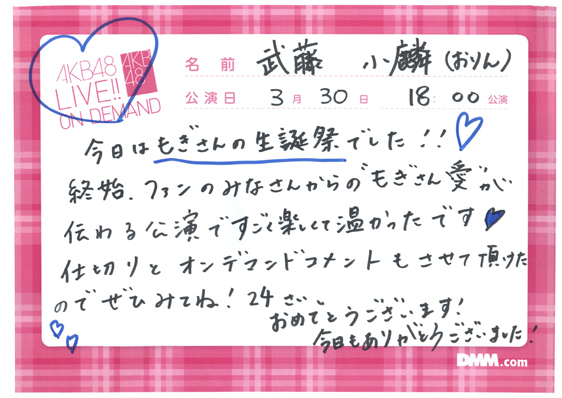 AKB48
LIVE!!
ON DEMAND
AKB
48
名前 武藤 小麟(おりん)
公演日 3月30日 18:00公演
今日はもぎさんの生誕祭でした!!
終始、ファンのみなさんからの"もぎさん愛"が
伝わる公演ですごく楽しくて温かったです
仕切りとオンデマンドコメントもさせて頂けた
のでぜひみてね!24さい
おめでとうございます!
今日もありがとうございました!
DMM.com